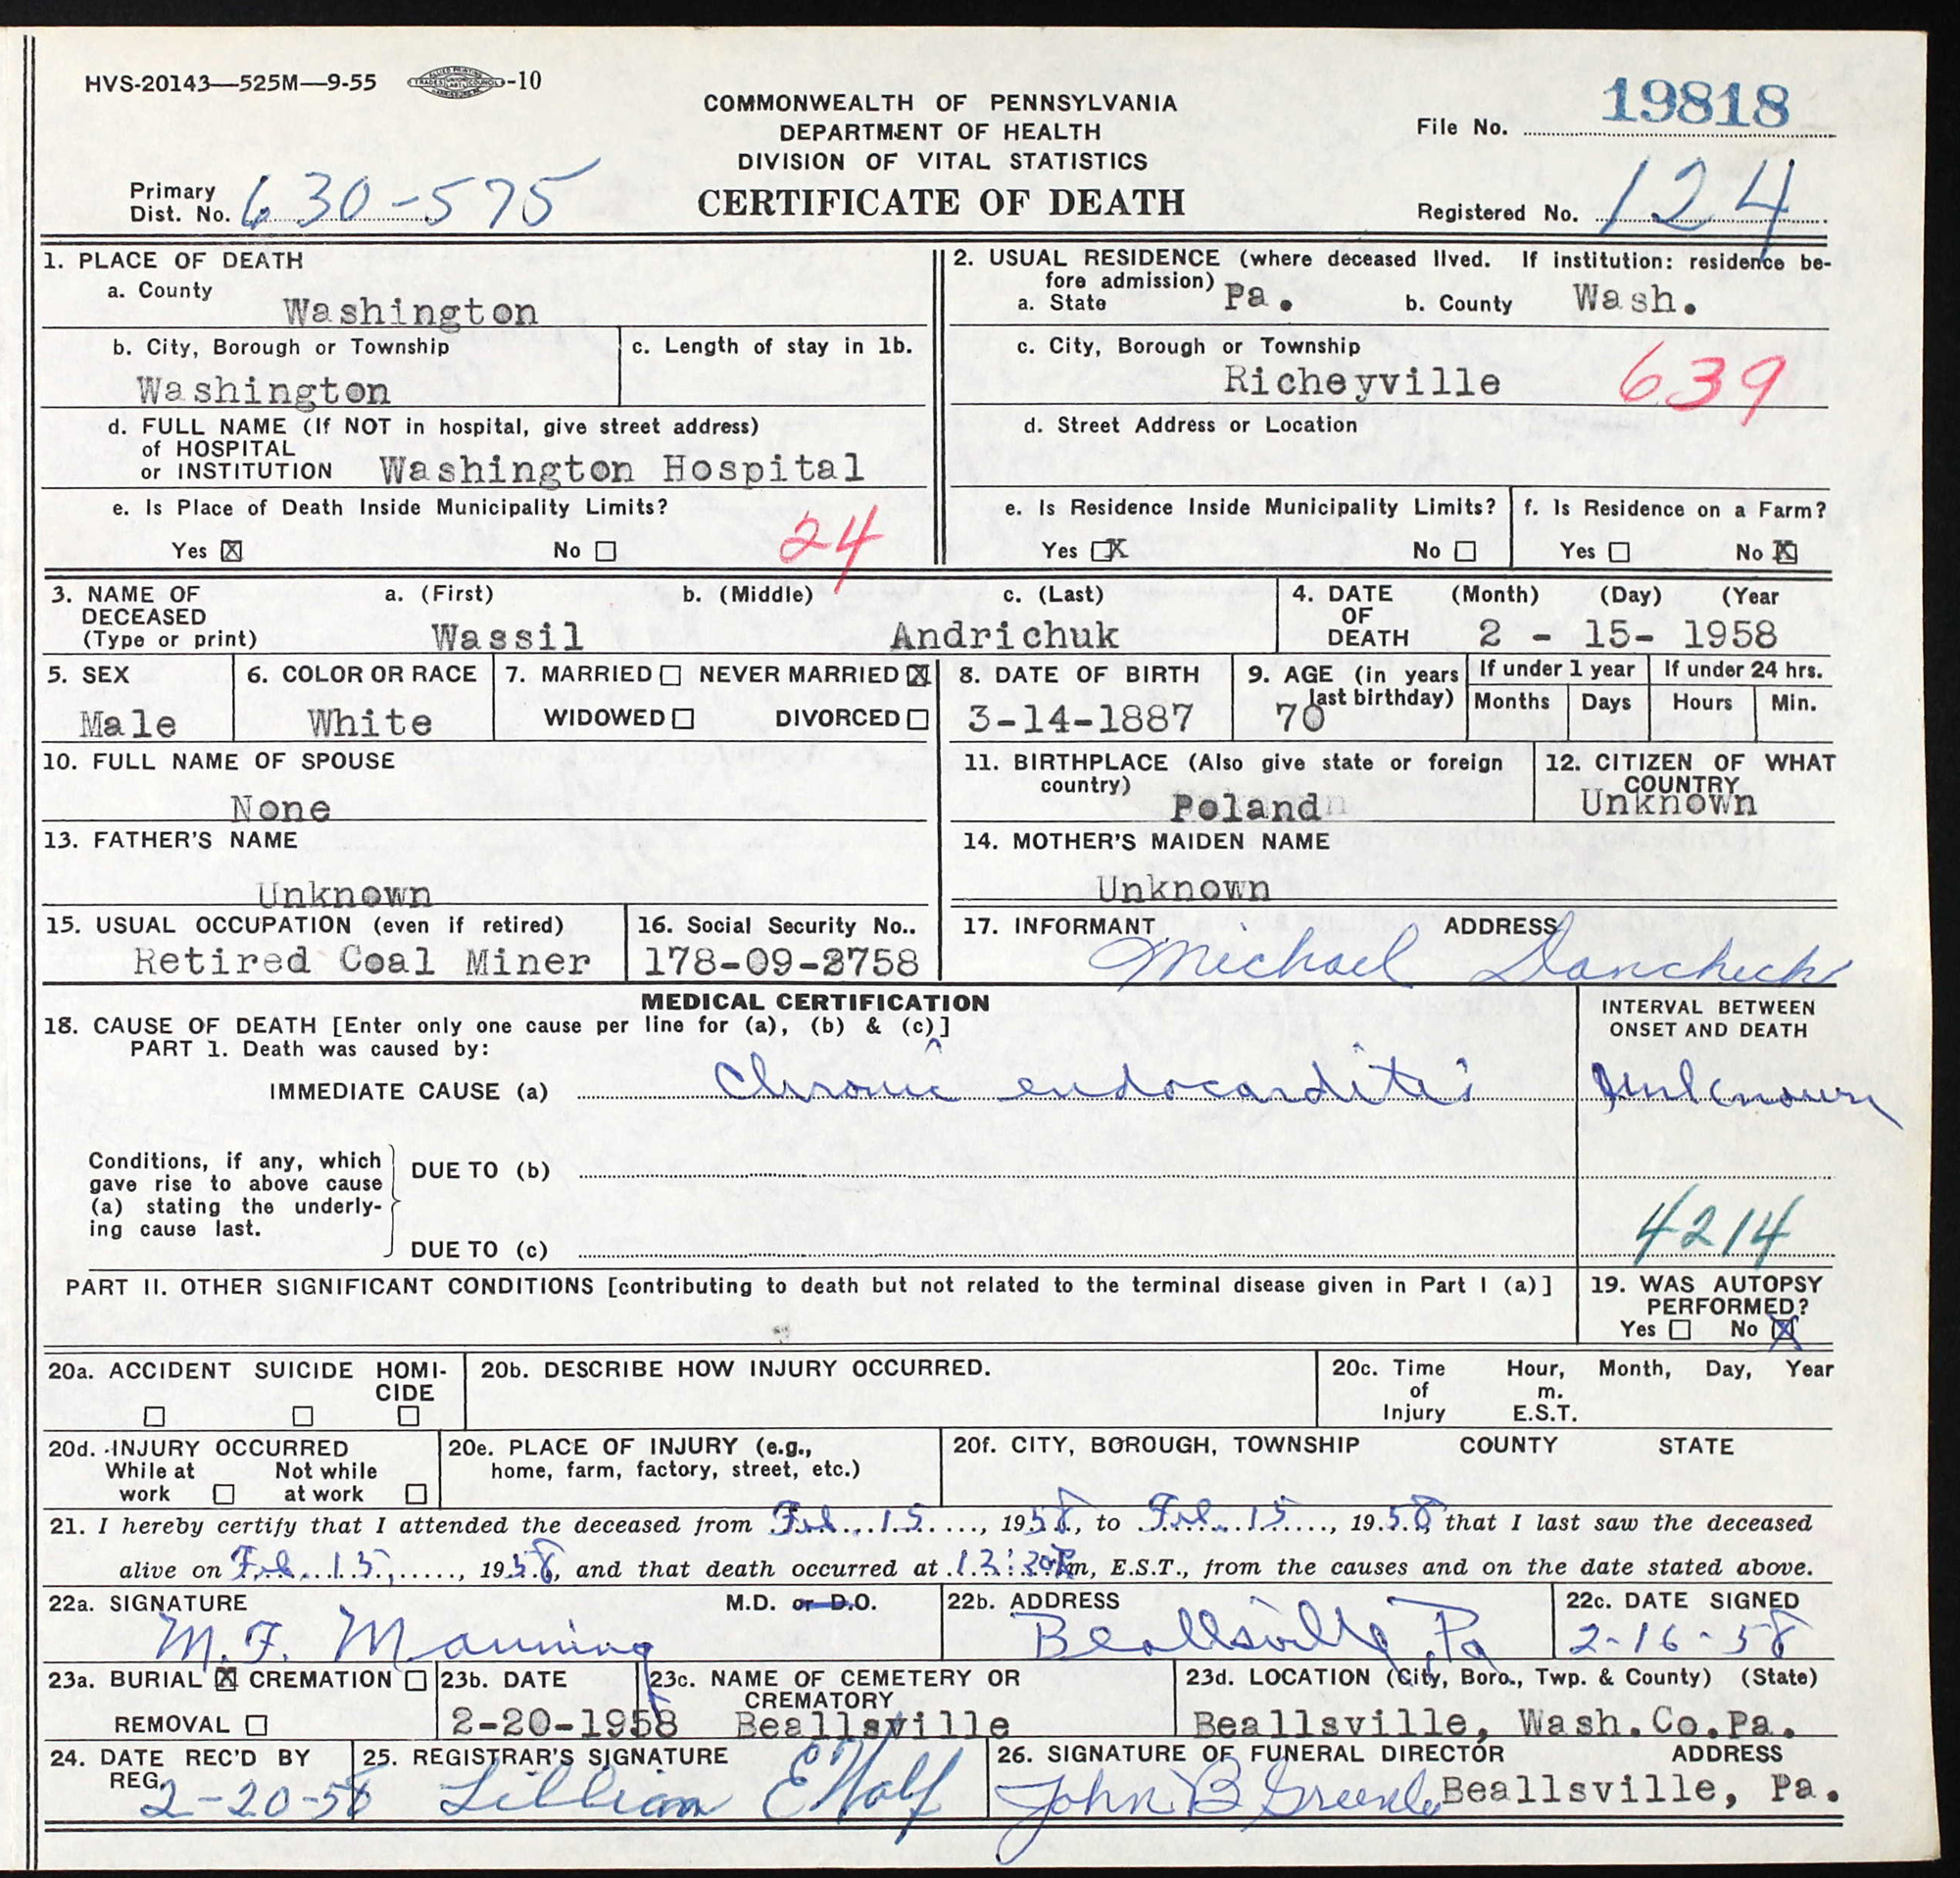 HVS-20143—525M—9-55 -10
COMMONWEALTH OF PENNSYLVANIA
DEPARTMENT OF HEALTH
DIVISION OF VITAL STATISTICS
CERTIFICATE OF DEATH
File No. 19818
Primary
Dist. No. 630-575
Registered No. 124
1. PLACE OF DEATH
a. County
Washington
b. City, Borough or Township
Washington
c. Length of stay in 1b.
d. FULL NAME (If NOT in hospital, give street address)
of HOSPITAL
or INSTITUTION Washington Hospital
e. Is Place of Death Inside Municipality Limits?
24
Yes ☒ No ☐
2. USUAL RESIDENCE (where deceased lived. If institution: residence be-
fore admission)
a. State Pa. b. County Wash.
c. City, Borough or Township
Richeyville 639
d. Street Address or Location
e. Is Residence Inside Municipality Limits?
Yes ☒ No ☐
f. Is Residence on a Farm?
Yes ☐ No ☒
3. NAME OF
DECEASED
(Type or print)
a. (First) b. (Middle) c. (Last)
Wassil Andrichuk
4. DATE
OF
DEATH
(Month) (Day) (Year
2 - 15- 1958
5. SEX
Male
6. COLOR OR RACE
White
7. MARRIED ☐ NEVER MARRIED ☒
WIDOWED ☐ DIVORCED ☐
8. DATE OF BIRTH
3-14-1887
9. AGE (in years
last birthday)
70
If under 1 year
Months Days
If under 24 hrs.
Hours Min.
10. FULL NAME OF SPOUSE
None
11. BIRTHPLACE (Also give state or foreign
country)
Poland
12. CITIZEN OF WHAT
COUNTRY
Unknown
13. FATHER'S NAME
Unknown
14. MOTHER'S MAIDEN NAME
Unknown
15. USUAL OCCUPATION (even if retired)
Retired Coal Miner
16. Social Security No..
178-09-3758
17. INFORMANT ADDRESS
Michael Dancheck
MEDICAL CERTIFICATION
18. CAUSE OF DEATH [Enter only one cause per line for (a), (b) & (c)]
PART 1. Death was caused by:
INTERVAL BETWEEN
ONSET AND DEATH
IMMEDIATE CAUSE (a) Chronic endocarditis Unknown
Conditions, if any, which
gave rise to above cause
(a) stating the underly-
ing cause last.
DUE TO (b)
DUE TO (c)
4214
PART II. OTHER SIGNIFICANT CONDITIONS [contributing to death but not related to the terminal disease given in Part I (a)]
19. WAS AUTOPSY
PERFORMED?
Yes ☐ No ☒
20a. ACCIDENT SUICIDE HOMI-
CIDE
☐ ☐ ☐
20b. DESCRIBE HOW INJURY OCCURRED.
20c. Time Hour, Month, Day, Year
of m.
Injury E.S.T.
20d. INJURY OCCURRED
While at Not while
work ☐ at work ☐
20e. PLACE OF INJURY (e.g.,
home, farm, factory, street, etc.)
20f. CITY, BOROUGH, TOWNSHIP COUNTY STATE
21. I hereby certify that I attended the deceased from Feb 15, 1958, to Feb. 15, 1958, that I last saw the deceased
alive on Feb 15, 1958, and that death occurred at m, E.S.T., from the causes and on the date stated above.
22a. SIGNATURE M.D. or D.O.
M. F. Manning
22b. ADDRESS
Beallsville, Pa
22c. DATE SIGNED
2-16-58
23a. BURIAL ☒ CREMATION ☐
REMOVAL ☐
23b. DATE
2-20-1958
23c. NAME OF CEMETERY OR
CREMATORY
Beallsville
23d. LOCATION (City, Boro., Twp. & County) (State)
Beallsville, Wash.Co.Pa.
24. DATE REC'D BY
REG.
2-20-58
25. REGISTRAR'S SIGNATURE
Lillian E Wolf
26. SIGNATURE OF FUNERAL DIRECTOR ADDRESS
John B Greenlee Beallsville, Pa.